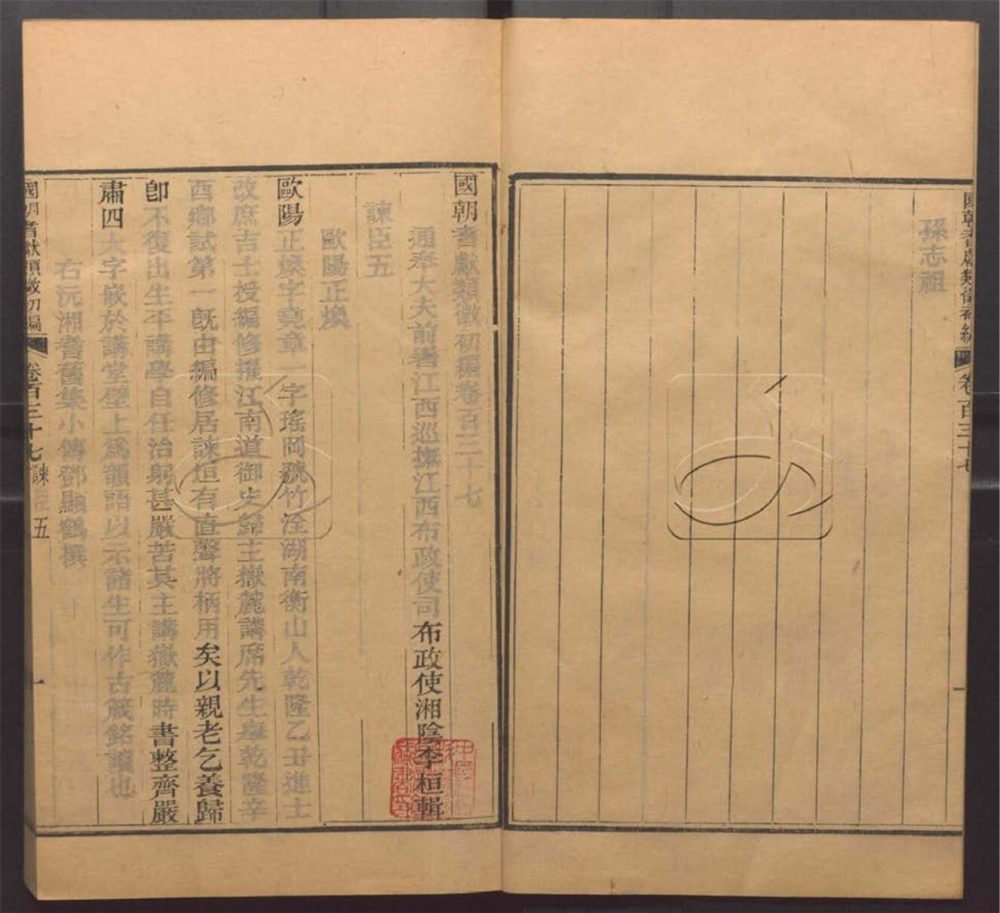 國朝耆獻類徵初編 卷百三十七 一
孫志祖
國朝耆獻類徵初編卷百三十七
通奉大夫前署江西巡撫江西布政使司布政使湘陰李桓輯
諫臣五
歐陽正煥
歐陽正煥字堯章一字瑤岡號竹淦湖南衡山人乾隆乙丑進士
改庶吉士授編修擢江南道御史歸主嶽麓講席先生舉乾隆辛
酉鄉試第一旣由編修居諫垣有直聲將柄用矣以親老乞養歸
卽不復出生平講學自任治躬甚嚴苦其主講嶽麓時書整齊嚴
肅四大字嵌於講堂壁上爲韻語以示諸生可作古箴銘讀也
右沅湘耆舊集小傳鄧顯鶴撰
國朝耆獻類徵初編 卷百三十七 諫臣五 一